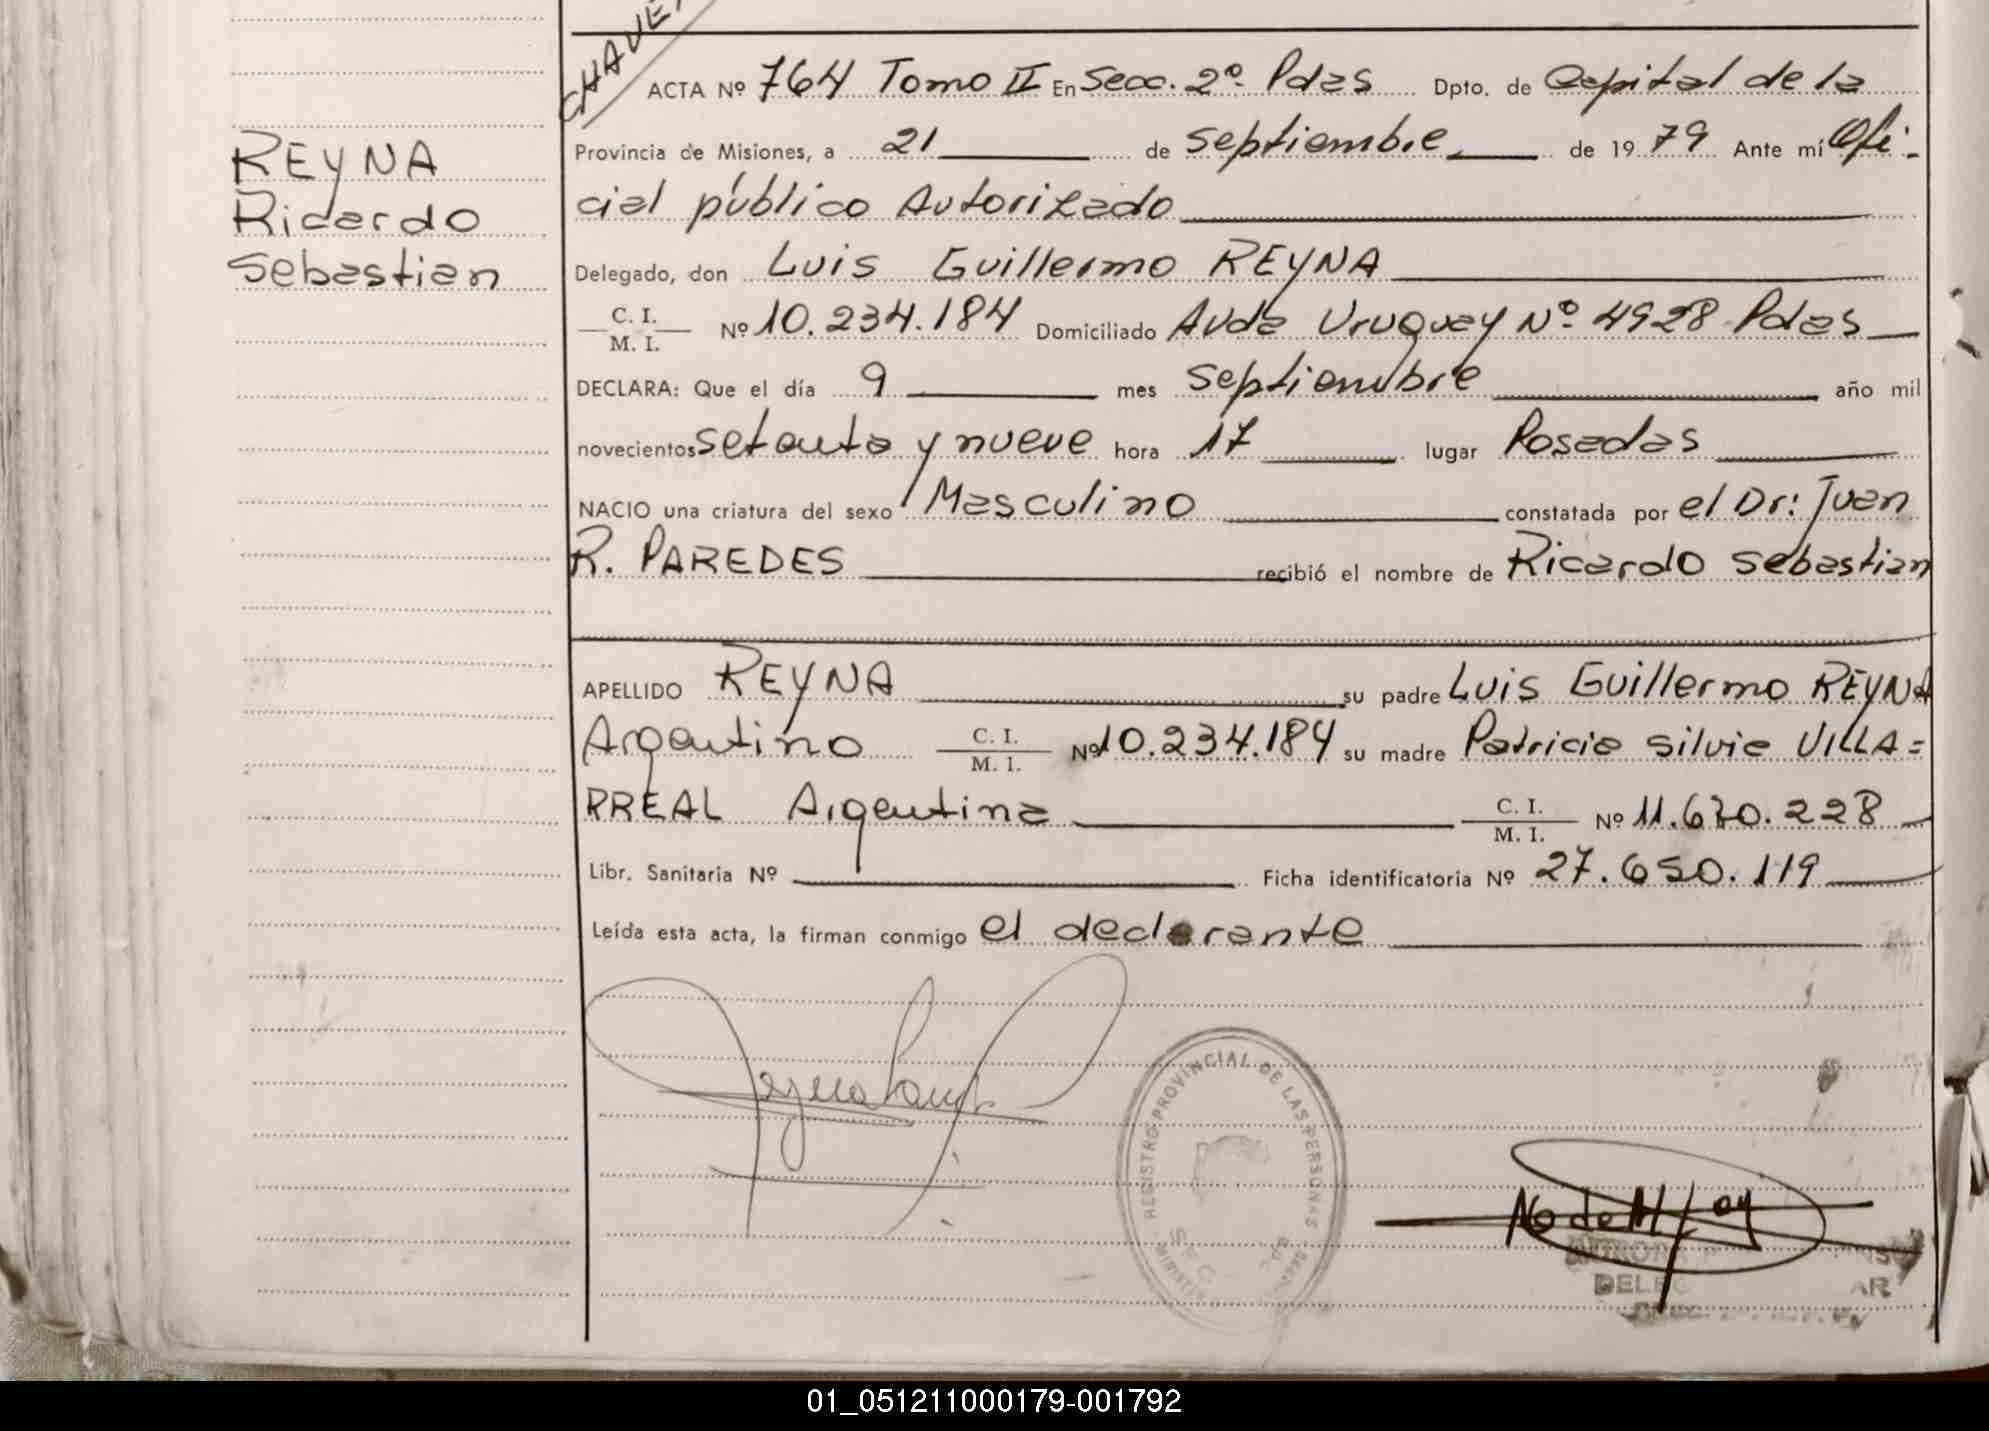 CHAVE
REYNA
Ricardo
Sebastian
ACTA Nº 764 Tomo II En Secc. 2º Pdas Dpto. de Capital de la
Provincia de Misiones, a 21 de septiembre de 1979 Ante mí Ofi-
cial público Autorizado
Delegado, don Luis Guillermo REYNA
C. I.
M. I. Nº 10.234.184 Domiciliado Avda Uruguay Nº 4928 Pdas
DECLARA: Que el día 9 mes septiembre año mil
novecientos setenta y nueve hora 17 lugar Posadas
NACIO una criatura del sexo Masculino constatada por el Dr: Juan
R. PAREDES recibió el nombre de Ricardo Sebastian
APELLIDO REYNA su padre Luis Guillermo REYNA
Argentino C. I. M. I. Nº 10.234.184 su madre Patricia Silvia VILLA=
RREAL Argentina C. I. M. I. Nº 228
Libr. Sanitaria Nº Ficha identificatoria Nº 27.650.119
Leída esta acta, la firman conmigo el declarante
REGISTRO PROVINCIAL DE LAS PERSONAS
DELE
01_051211000179-001792